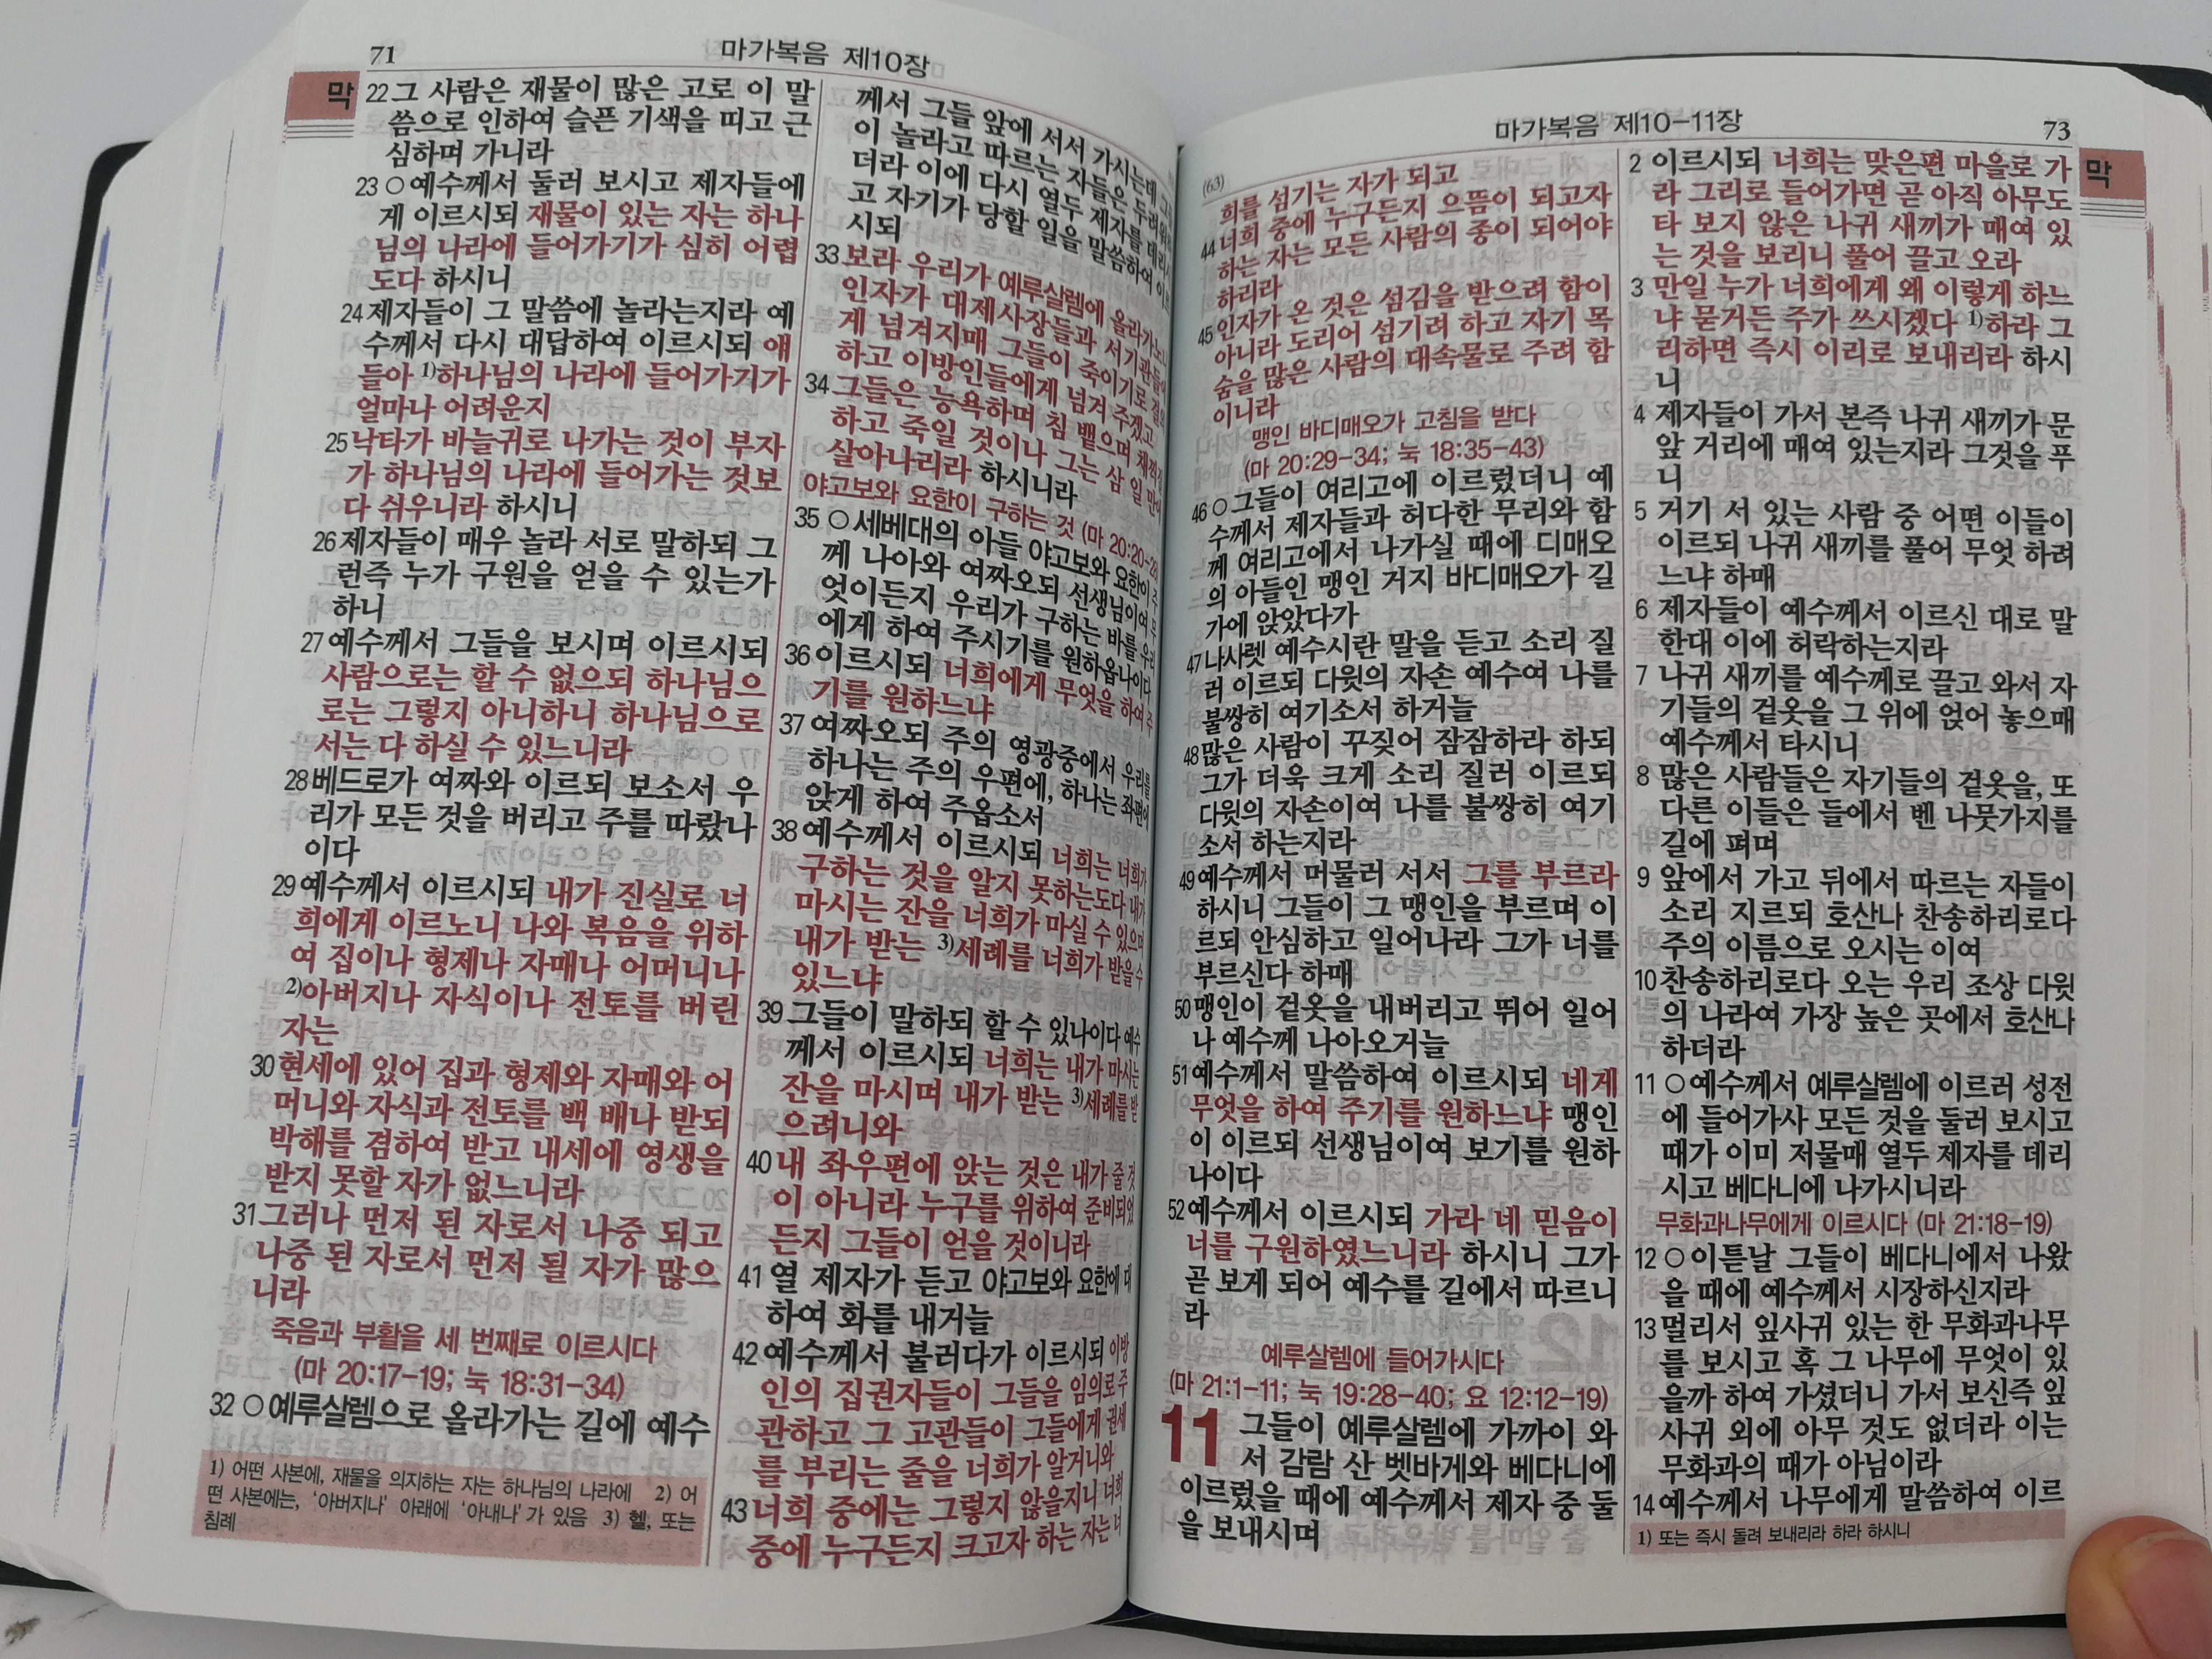 71
마가복음 제10장
막
22 그 사람은 재물이 많은 고로 이 말
씀으로 인하여 슬픈 기색을 띠고 근
심하며 가니라
23 ○예수께서 둘러 보시고 제자들에
게 이르시되 재물이 있는 자는 하나
님의 나라에 들어가기가 심히 어렵
도다 하시니
24 제자들이 그 말씀에 놀라는지라 예
수께서 다시 대답하여 이르시되 얘
들아 1)하나님의 나라에 들어가기가
얼마나 어려운지
25 낙타가 바늘귀로 나가는 것이 부자
가 하나님의 나라에 들어가는 것보
다 쉬우니라 하시니
26 제자들이 매우 놀라 서로 말하되 그
런즉 누가 구원을 얻을 수 있는가
하니
27 예수께서 그들을 보시며 이르시되
사람으로는 할 수 없으되 하나님으
로는 그렇지 아니하니 하나님으로
서는 다 하실 수 있느니라
28 베드로가 여짜와 이르되 보소서 우
리가 모든 것을 버리고 주를 따랐나
이다
29 예수께서 이르시되 내가 진실로 너
희에게 이르노니 나와 복음을 위하
여 집이나 형제나 자매나 어머니나
2)아버지나 자식이나 전토를 버린
자는
30 현세에 있어 집과 형제와 자매와 어
머니와 자식과 전토를 백 배나 받되
박해를 겸하여 받고 내세에 영생을
받지 못할 자가 없느니라
31 그러나 먼저 된 자로서 나중 되고
나중 된 자로서 먼저 될 자가 많으
니라
죽음과 부활을 세 번째로 이르시다
(마 20:17-19; 눅 18:31-34)
32 ○예루살렘으로 올라가는 길에 예수
1) 어떤 사본에, 재물을 의지하는 자는 하나님의 나라에 2) 어
떤 사본에는, '아버지나' 아래에 '아내나'가 있음 3) 헬, 또는
침례
께서 그들 앞에 서서 가시는데
이 놀라고 따르는 자들은 두려워하
더라 이에 다시 열두 제자를 데리시
고 자기가 당할 일을 말씀하여 이르
시되
33 보라 우리가 예루살렘에 올라가노니
인자가 대제사장들과 서기관들에
게 넘겨지매 그들이 죽이기로 결의
하고 이방인들에게 넘겨 주겠고
34 그들은 능욕하며 침 뱉으며 채찍질
하고 죽일 것이나 그는 삼 일 만에
살아나리라 하시니라
야고보와 요한이 구하는 것 (마 20:20-28)
35 ○세베대의 아들 야고보와 요한이 주
께 나아와 여짜오되 선생님이여 무
엇이든지 우리가 구하는 바를 우리
에게 하여 주시기를 원하옵나이다
36 이르시되 너희에게 무엇을 하여 주
기를 원하느냐
37 여짜오되 주의 영광중에서 우리를
하나는 주의 우편에, 하나는 좌편에
앉게 하여 주옵소서
38 예수께서 이르시되 너희는 너희가
구하는 것을 알지 못하는도다 내가
마시는 잔을 너희가 마실 수 있으며
내가 받는 3)세례를 너희가 받을 수
있느냐
39 그들이 말하되 할 수 있나이다 예수
께서 이르시되 너희는 내가 마시는
잔을 마시며 내가 받는 3)세례를 받
으려니와
40 내 좌우편에 앉는 것은 내가 줄 것
이 아니라 누구를 위하여 준비되었
든지 그들이 얻을 것이니라
41 열 제자가 듣고 야고보와 요한에 대
하여 화를 내거늘
42 예수께서 불러다가 이르시되 이방
인의 집권자들이 그들을 임의로 주
관하고 그 고관들이 그들에게 권세
를 부리는 줄을 너희가 알거니와
43 너희 중에는 그렇지 않을지니 너희
중에 누구든지 크고자 하는 자는 너
마가복음 제10-11장
73
막
(63)
희를 섬기는 자가 되고
44 너희 중에 누구든지 으뜸이 되고자
하는 자는 모든 사람의 종이 되어야
하리라
45 인자가 온 것은 섬김을 받으려 함이
아니라 도리어 섬기려 하고 자기 목
숨을 많은 사람의 대속물로 주려 함
이니라
맹인 바디매오가 고침을 받다
(마 20:29-34; 눅 18:35-43)
46 ○그들이 여리고에 이르렀더니 예
수께서 제자들과 허다한 무리와 함
께 여리고에서 나가실 때에 디매오
의 아들인 맹인 거지 바디매오가 길
가에 앉았다가
47 나사렛 예수시란 말을 듣고 소리 질
러 이르되 다윗의 자손 예수여 나를
불쌍히 여기소서 하거늘
48 많은 사람이 꾸짖어 잠잠하라 하되
그가 더욱 크게 소리 질러 이르되
다윗의 자손이여 나를 불쌍히 여기
소서 하는지라
49 예수께서 머물러 서서 그를 부르라
하시니 그들이 그 맹인을 부르며 이
르되 안심하고 일어나라 그가 너를
부르신다 하매
50 맹인이 겉옷을 내버리고 뛰어 일어
나 예수께 나아오거늘
51 예수께서 말씀하여 이르시되 네게
무엇을 하여 주기를 원하느냐 맹인
이 이르되 선생님이여 보기를 원하
나이다
52 예수께서 이르시되 가라 네 믿음이
너를 구원하였느니라 하시니 그가
곧 보게 되어 예수를 길에서 따르니
라
예루살렘에 들어가시다
(마 21:1-11; 눅 19:28-40; 요 12:12-19)
11 그들이 예루살렘에 가까이 와
서 감람 산 벳바게와 베다니에
이르렀을 때에 예수께서 제자 중 둘
을 보내시며
2 이르시되 너희는 맞은편 마을로 가
라 그리로 들어가면 곧 아직 아무도
타 보지 않은 나귀 새끼가 매여 있
는 것을 보리니 풀어 끌고 오라
3 만일 누가 너희에게 왜 이렇게 하느
냐 묻거든 주가 쓰시겠다 1)하라 그
리하면 즉시 이리로 보내리라 하시
니
4 제자들이 가서 본즉 나귀 새끼가 문
앞 거리에 매여 있는지라 그것을 푸
니
5 거기 서 있는 사람 중 어떤 이들이
이르되 나귀 새끼를 풀어 무엇 하려
느냐 하매
6 제자들이 예수께서 이르신 대로 말
한대 이에 허락하는지라
7 나귀 새끼를 예수께로 끌고 와서 자
기들의 겉옷을 그 위에 얹어 놓으매
예수께서 타시니
8 많은 사람들은 자기들의 겉옷을, 또
다른 이들은 들에서 벤 나뭇가지를
길에 펴며
9 앞에서 가고 뒤에서 따르는 자들이
소리 지르되 호산나 찬송하리로다
주의 이름으로 오시는 이여
10 찬송하리로다 오는 우리 조상 다윗
의 나라여 가장 높은 곳에서 호산나
하더라
11 ○예수께서 예루살렘에 이르러 성전
에 들어가사 모든 것을 둘러 보시고
때가 이미 저물매 열두 제자를 데리
시고 베다니에 나가시니라
무화과나무에게 이르시다 (마 21:18-19)
12 ○이튿날 그들이 베다니에서 나왔
을 때에 예수께서 시장하신지라
13 멀리서 잎사귀 있는 한 무화과나무
를 보시고 혹 그 나무에 무엇이 있
을까 하여 가셨더니 가서 보신즉 잎
사귀 외에 아무 것도 없더라 이는
무화과의 때가 아님이라
14 예수께서 나무에게 말씀하여 이르
1) 또는 즉시 돌려 보내리라 하라 하시니